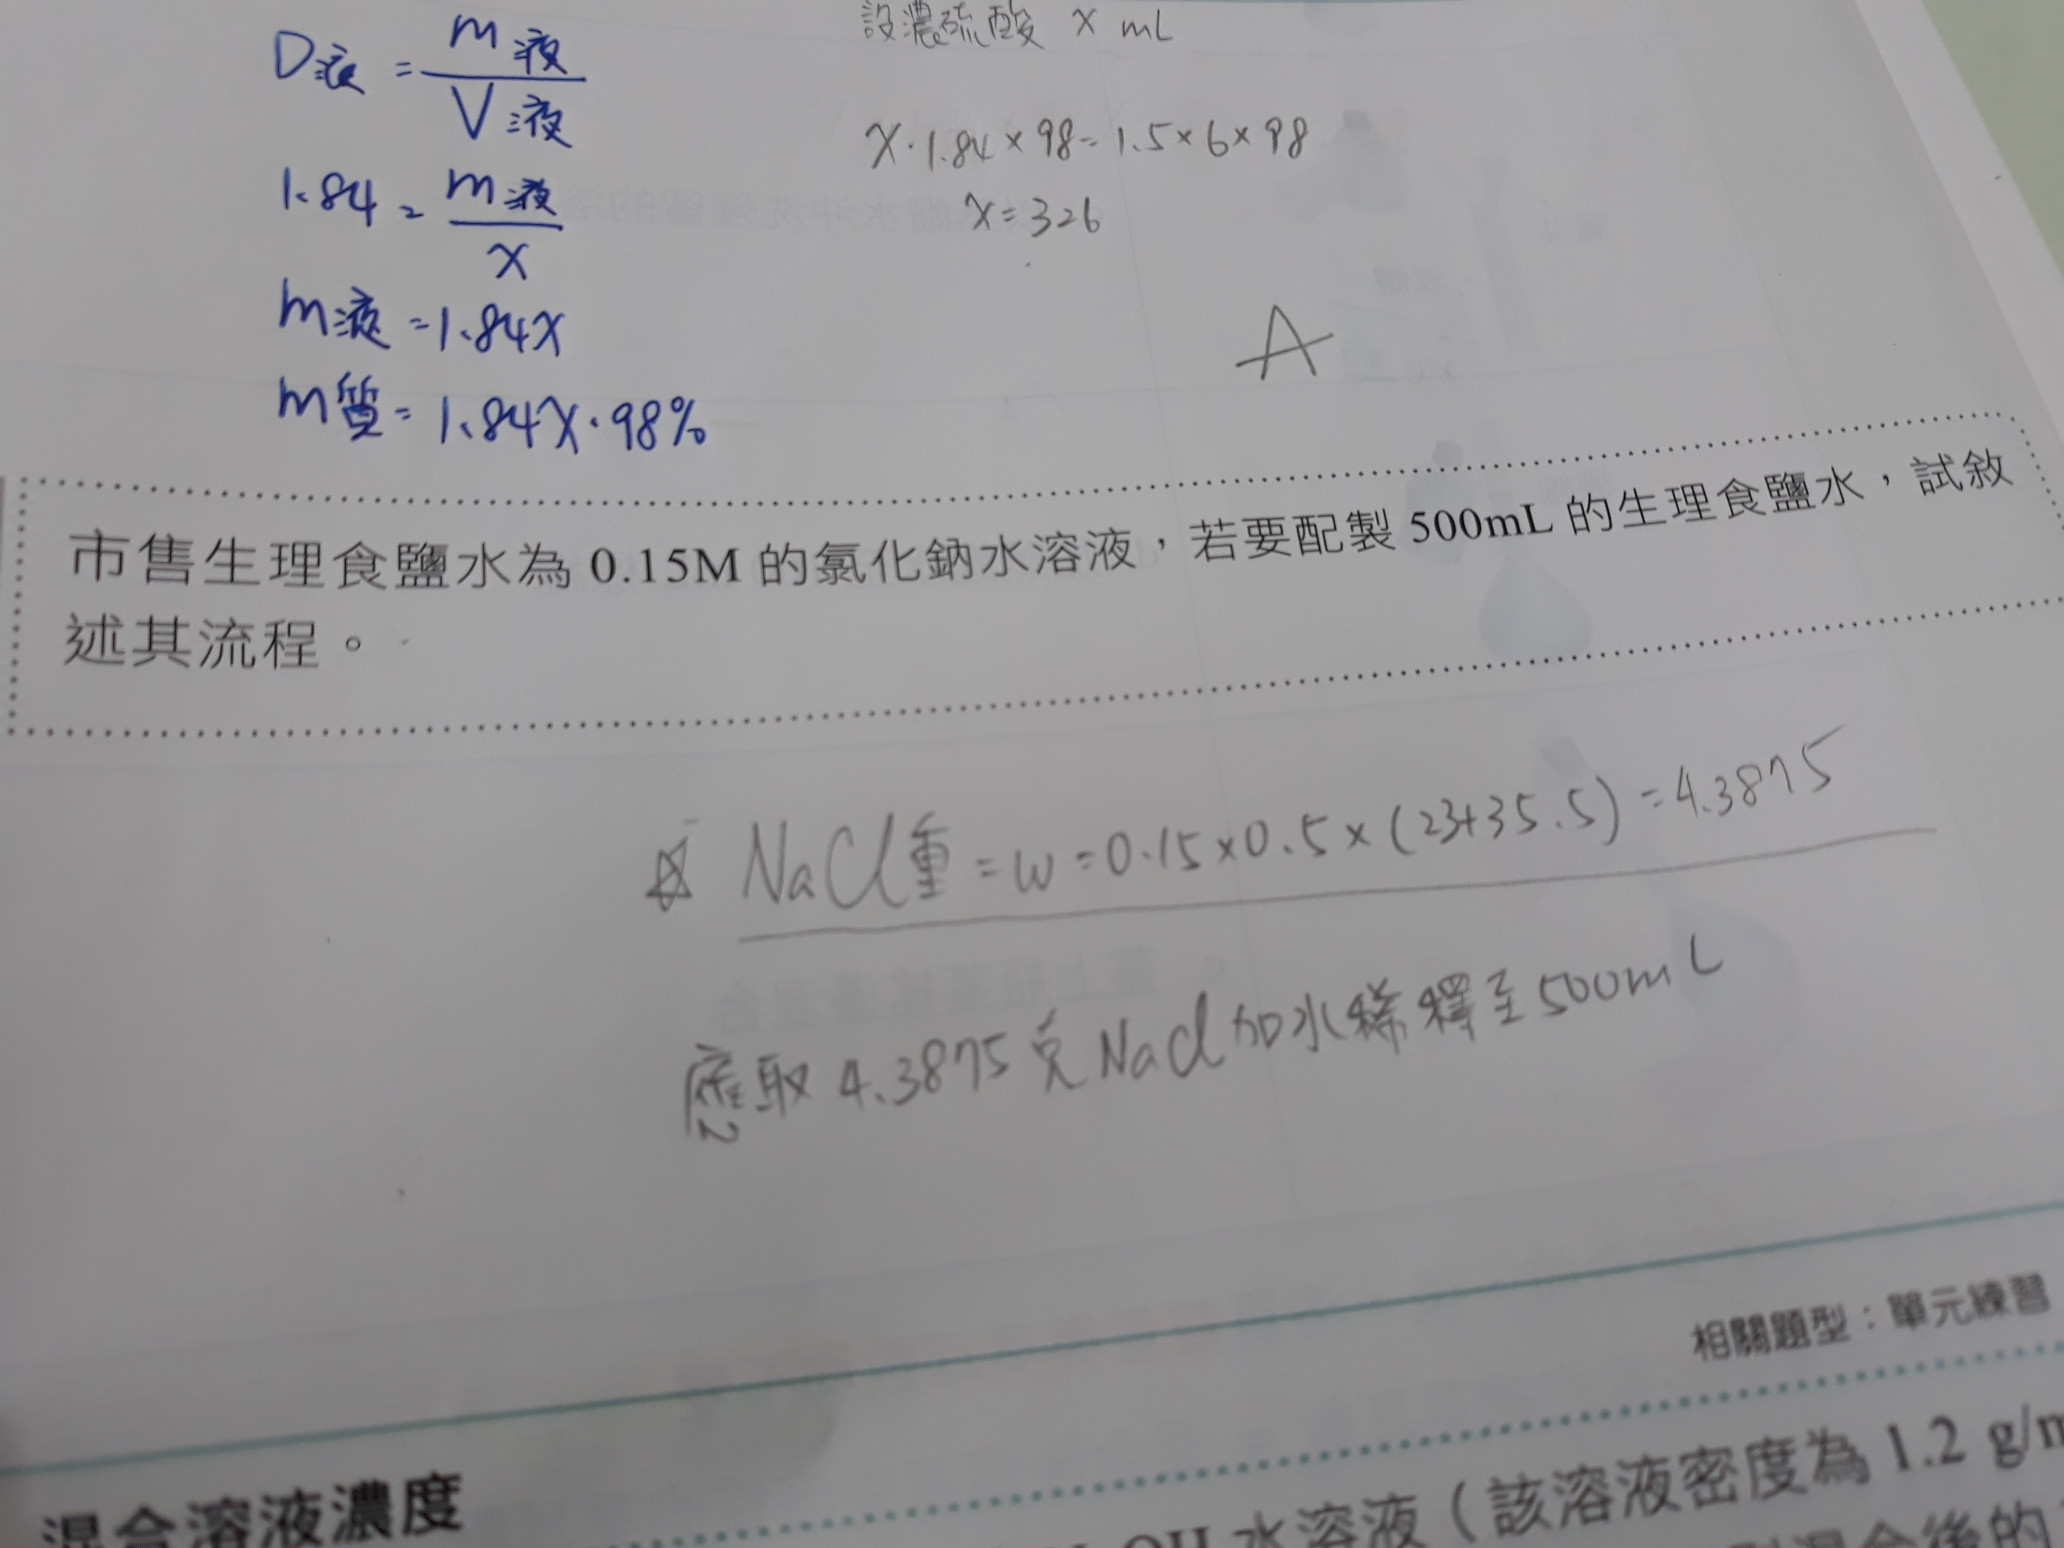 D液 = m液 / V液
1.84 = m液 / x
m液 = 1.84x
m質 = 1.84x·98%
設濃硫酸 x mL
x·1.84×98=1.5×6×98
x=326
A
市售生理食鹽水為 0.15M 的氯化鈉水溶液，若要配製 500mL 的生理食鹽水，試敘
述其流程。
☆ NaCl重=w=0.15×0.5×(23+35.5)=4.3875
應取 4.3875克 NaCl加水稀釋至500mL
相關題型：單元練習
混合溶液濃度
OH 水溶液（該溶液密度為 1.2 g/m
混合後的